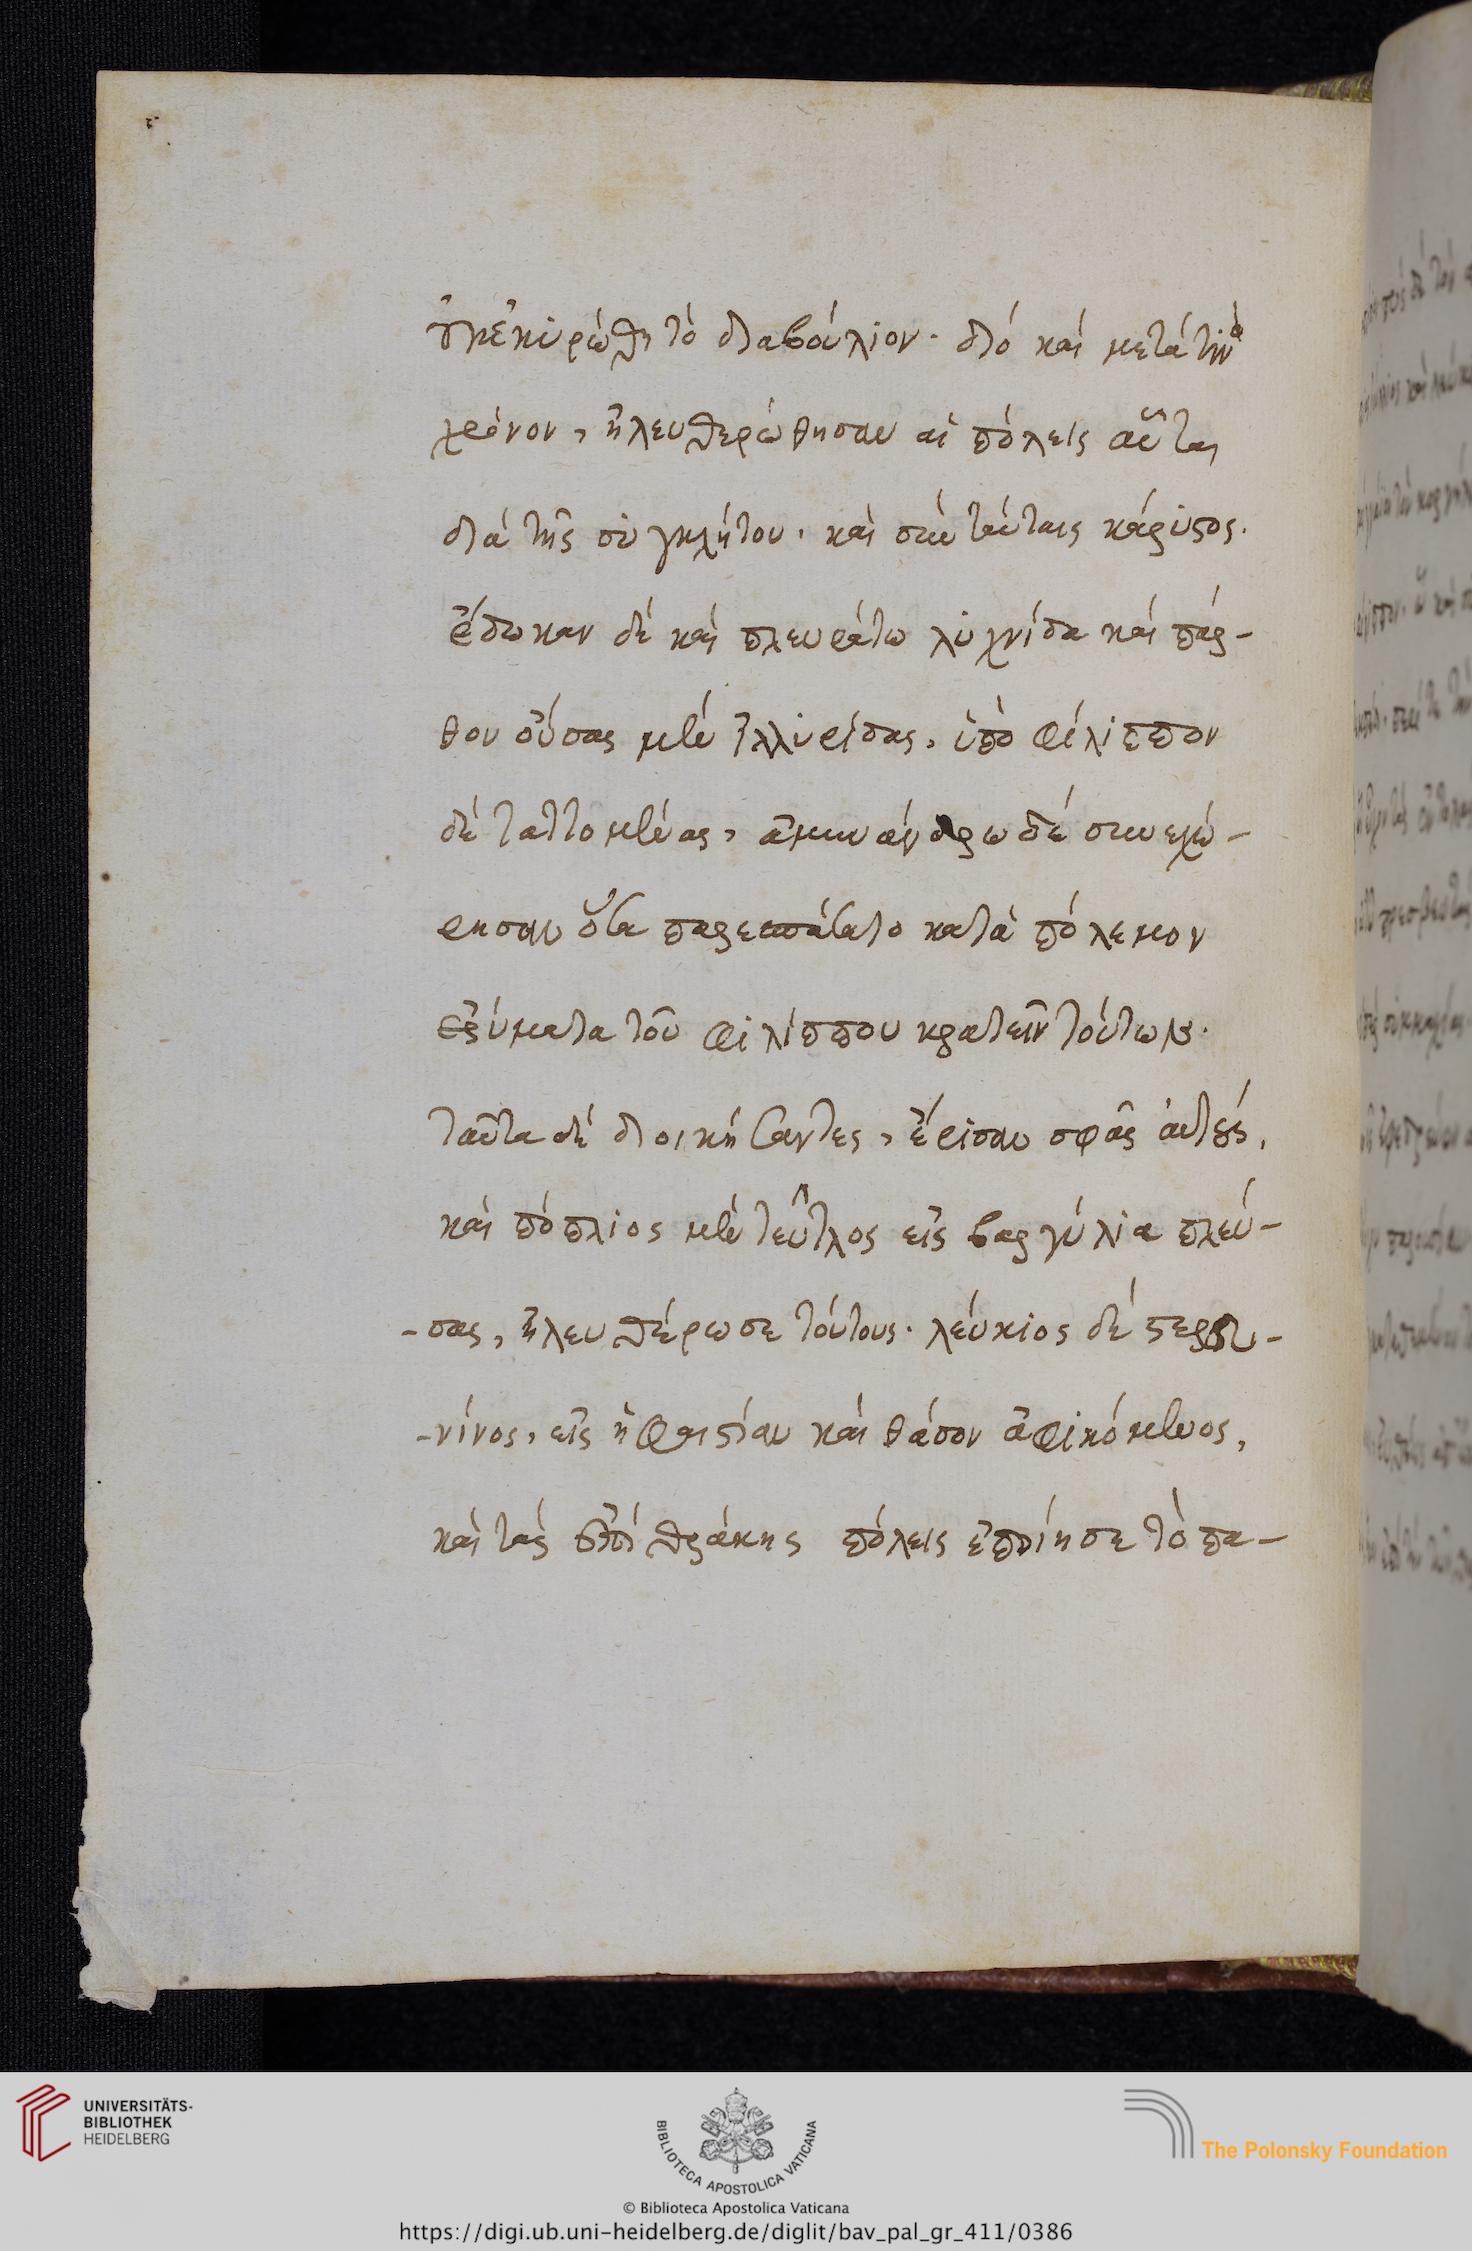 ἐκεκϊρώθη τὸ διαβούλιον. διό καὶ μετά τινὰ
χρόνον, ἠλευθερώθησαν αἱ πόλεις αὗται
διά τῆς συγκλήτου. καὶ σὺν ταύταις κάρυστος.
ἔδωκαν δέ καὶ πλευράτω λυχνίδα καὶ πάρ-
θον οὔσας μὲν ἰλλυρίδας, ὑπὸ φίλιππον
δὲ ταττομένας, ἀμυνάνδρω δέ συνεχώ-
ρησαν ὅσα παρεσπάσατο κατὰ πόλεμον
ἐρύματα τοῦ φιλίππου κρατεῖν τούτων.
ταῦτα δέ διοικήσαντες, ἐμέρισαν σφᾶς αὐτούς,
καὶ πόπλιος μὲν λέντλος εἰς βαργύλια πλεύ-
-σας, ἠλευθέρωσε τούτους. λεύκιος δέ στερτι-
-νίνος, εἰς ἡφαιστίαν καὶ θάσον ἀφικόμενος,
καὶ τάς ἐπὶ θράκης πόλεις ἐποίησε τὸ πα-
UNIVERSITÄTS-
BIBLIOTHEK
HEIDELBERG
BIBLIOTECA APOSTOLICA VATICANA
The Polonsky Foundation
© Biblioteca Apostolica Vaticana
https://digi.ub.uni-heidelberg.de/diglit/bav_pal_gr_411/0386